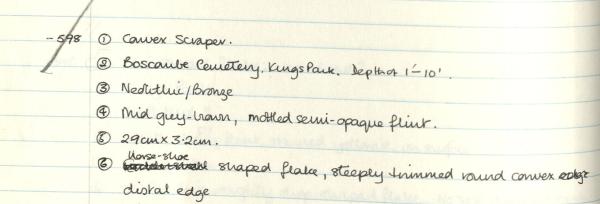 -598 ① Convex Scraper.
② Boscombe Cemetery. Kings Park. Depth of 1'-10'.
③ Neolithic/Bronze
④ Mid grey-brown, mottled semi-opaque flint.
⑤ 29cm x 3.2cm.
⑥ Horse-shoe shaped flake, steeply trimmed round convex edge
distal edge